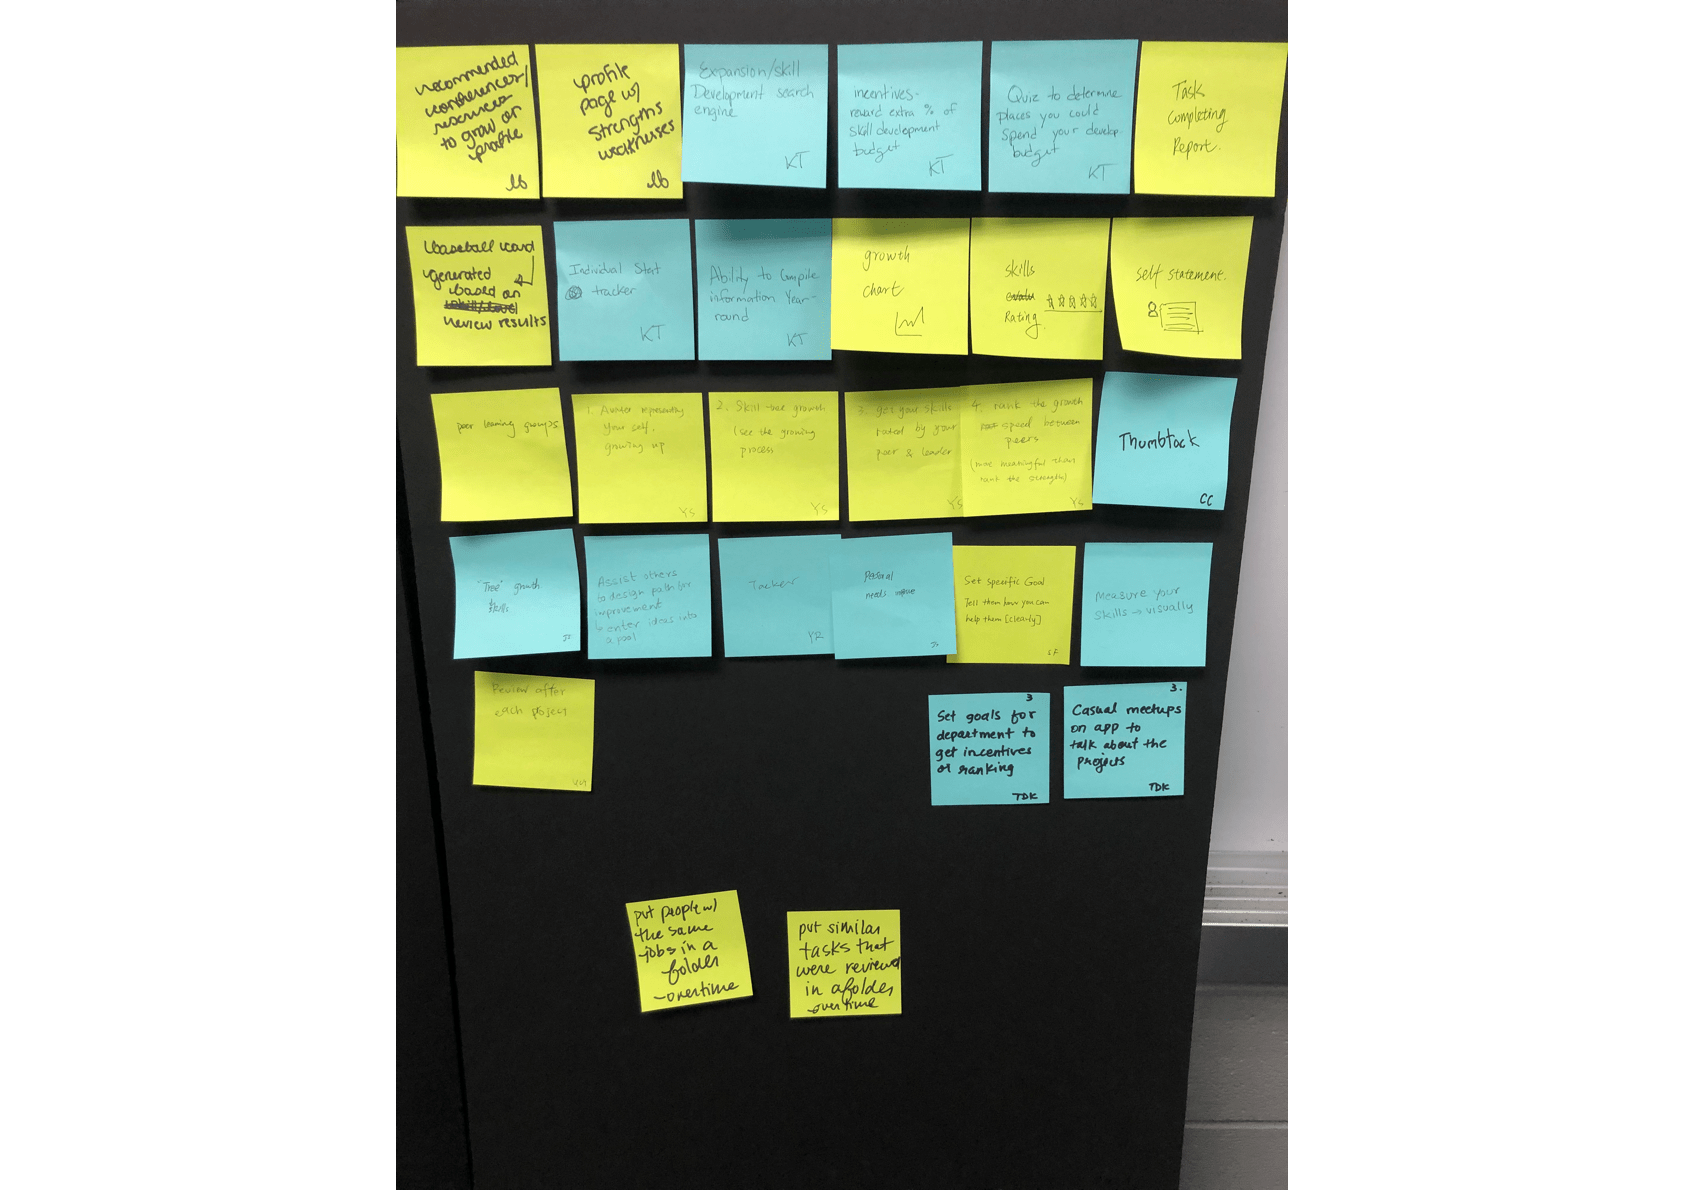 recommended
conferences/
resources
to grow on
profile
lb
profile
page w/
strengths
weaknesses
lb
Expansion/skill
Development search
engine
KT
incentives-
reward extra % of
skill development
budget
KT
Quiz to determine
places you could
spend your develop-
budget
KT
Task
Completing
Report.
baseball card
generated
based on
review results
Individual Start
tracker
KT
Ability to Compile
information Year-
round
KT
growth
chart
skills
Rating
self statement.
peer learning groups
1. Avatar representing
your self.
growing up
YS
2. Skill-tree growth
(see the growing
process
YS
3. get your skills
rated by your
peer & leader
YS
4. rank the growth
speed between
peers
(more meaningful than
rank the strength)
YS
Thumbtack
CC
"Tree" growth
skills
Assist others
to design path for
improvement
enter ideas into
a pool
Tacker
YR
Personal
needs
Set Specific Goal
Tell them how you can
help them [clearly]
SF
Measure your
Skills → visually
Review after
each project
3
Set goals for
department to
get incentives
or ranking
TDK
3.
Casual meetups
on app to
talk about the
projects
TDK
put people w/
the same
jobs in a
folder
-overtime
put similar
tasks that
were reviewed
in a folder
-overtime